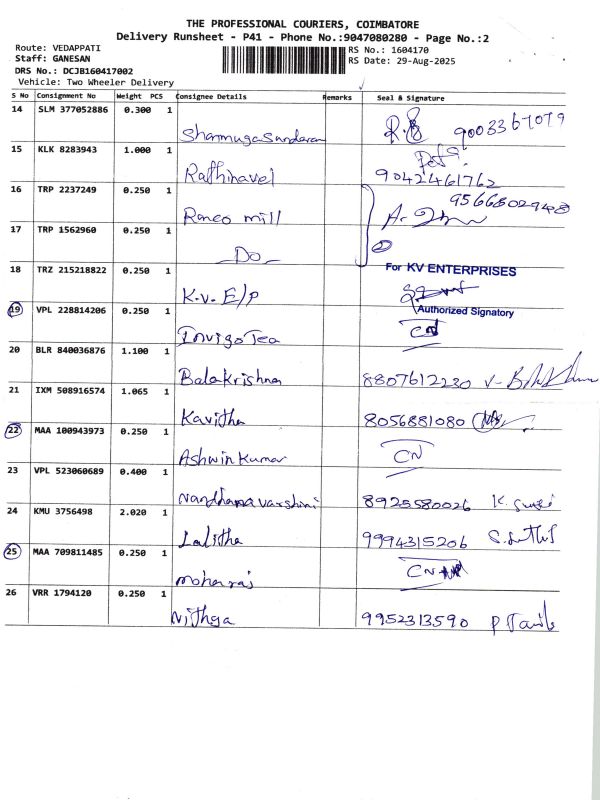 THE PROFESSIONAL COURIERS, COIMBATORE
Delivery Runsheet - P41 - Phone No.:9047080280 - Page No.:2
Route: VEDAPPATI
RS No.: 1604170
Staff: GANESAN
RS Date: 29-Aug-2025
DRS No.: DCJB160417002
Vehicle: Two Wheeler Delivery
S No Consignment No Weight PCS Consignee Details Remarks Seal & Signature
14 SLM 377052886 0.300 1
Shanmugasundaram 9003367079
15 KLK 8283943 1.000 1
Rathinavel 9042461762
16 TRP 2237249 0.250 1
Ranco mill
17 TRP 1562960 0.250 1
Do 2
18 TRZ 215218822 0.250 1 For KV ENTERPRISES
K.V. E/P
Authorized Signatory
19 VPL 228814206 0.250 1
Invigo Tea CN
20 BLR 840036876 1.100 1
Balakrishna 8807612230
21 IXM 508916574 1.065 1
Kavitha 8056881080
22 MAA 100943973 0.250 1
Ashwin Kumar CN
23 VPL 523060689 0.400 1
Nandhanavarshini 8925580026
24 KMU 3756498 2.020 1
Lalitha 9994315206
25 MAA 709811485 0.250 1
Mohanraj CN
26 VRR 1794120 0.250 1
Nithya 9952313590